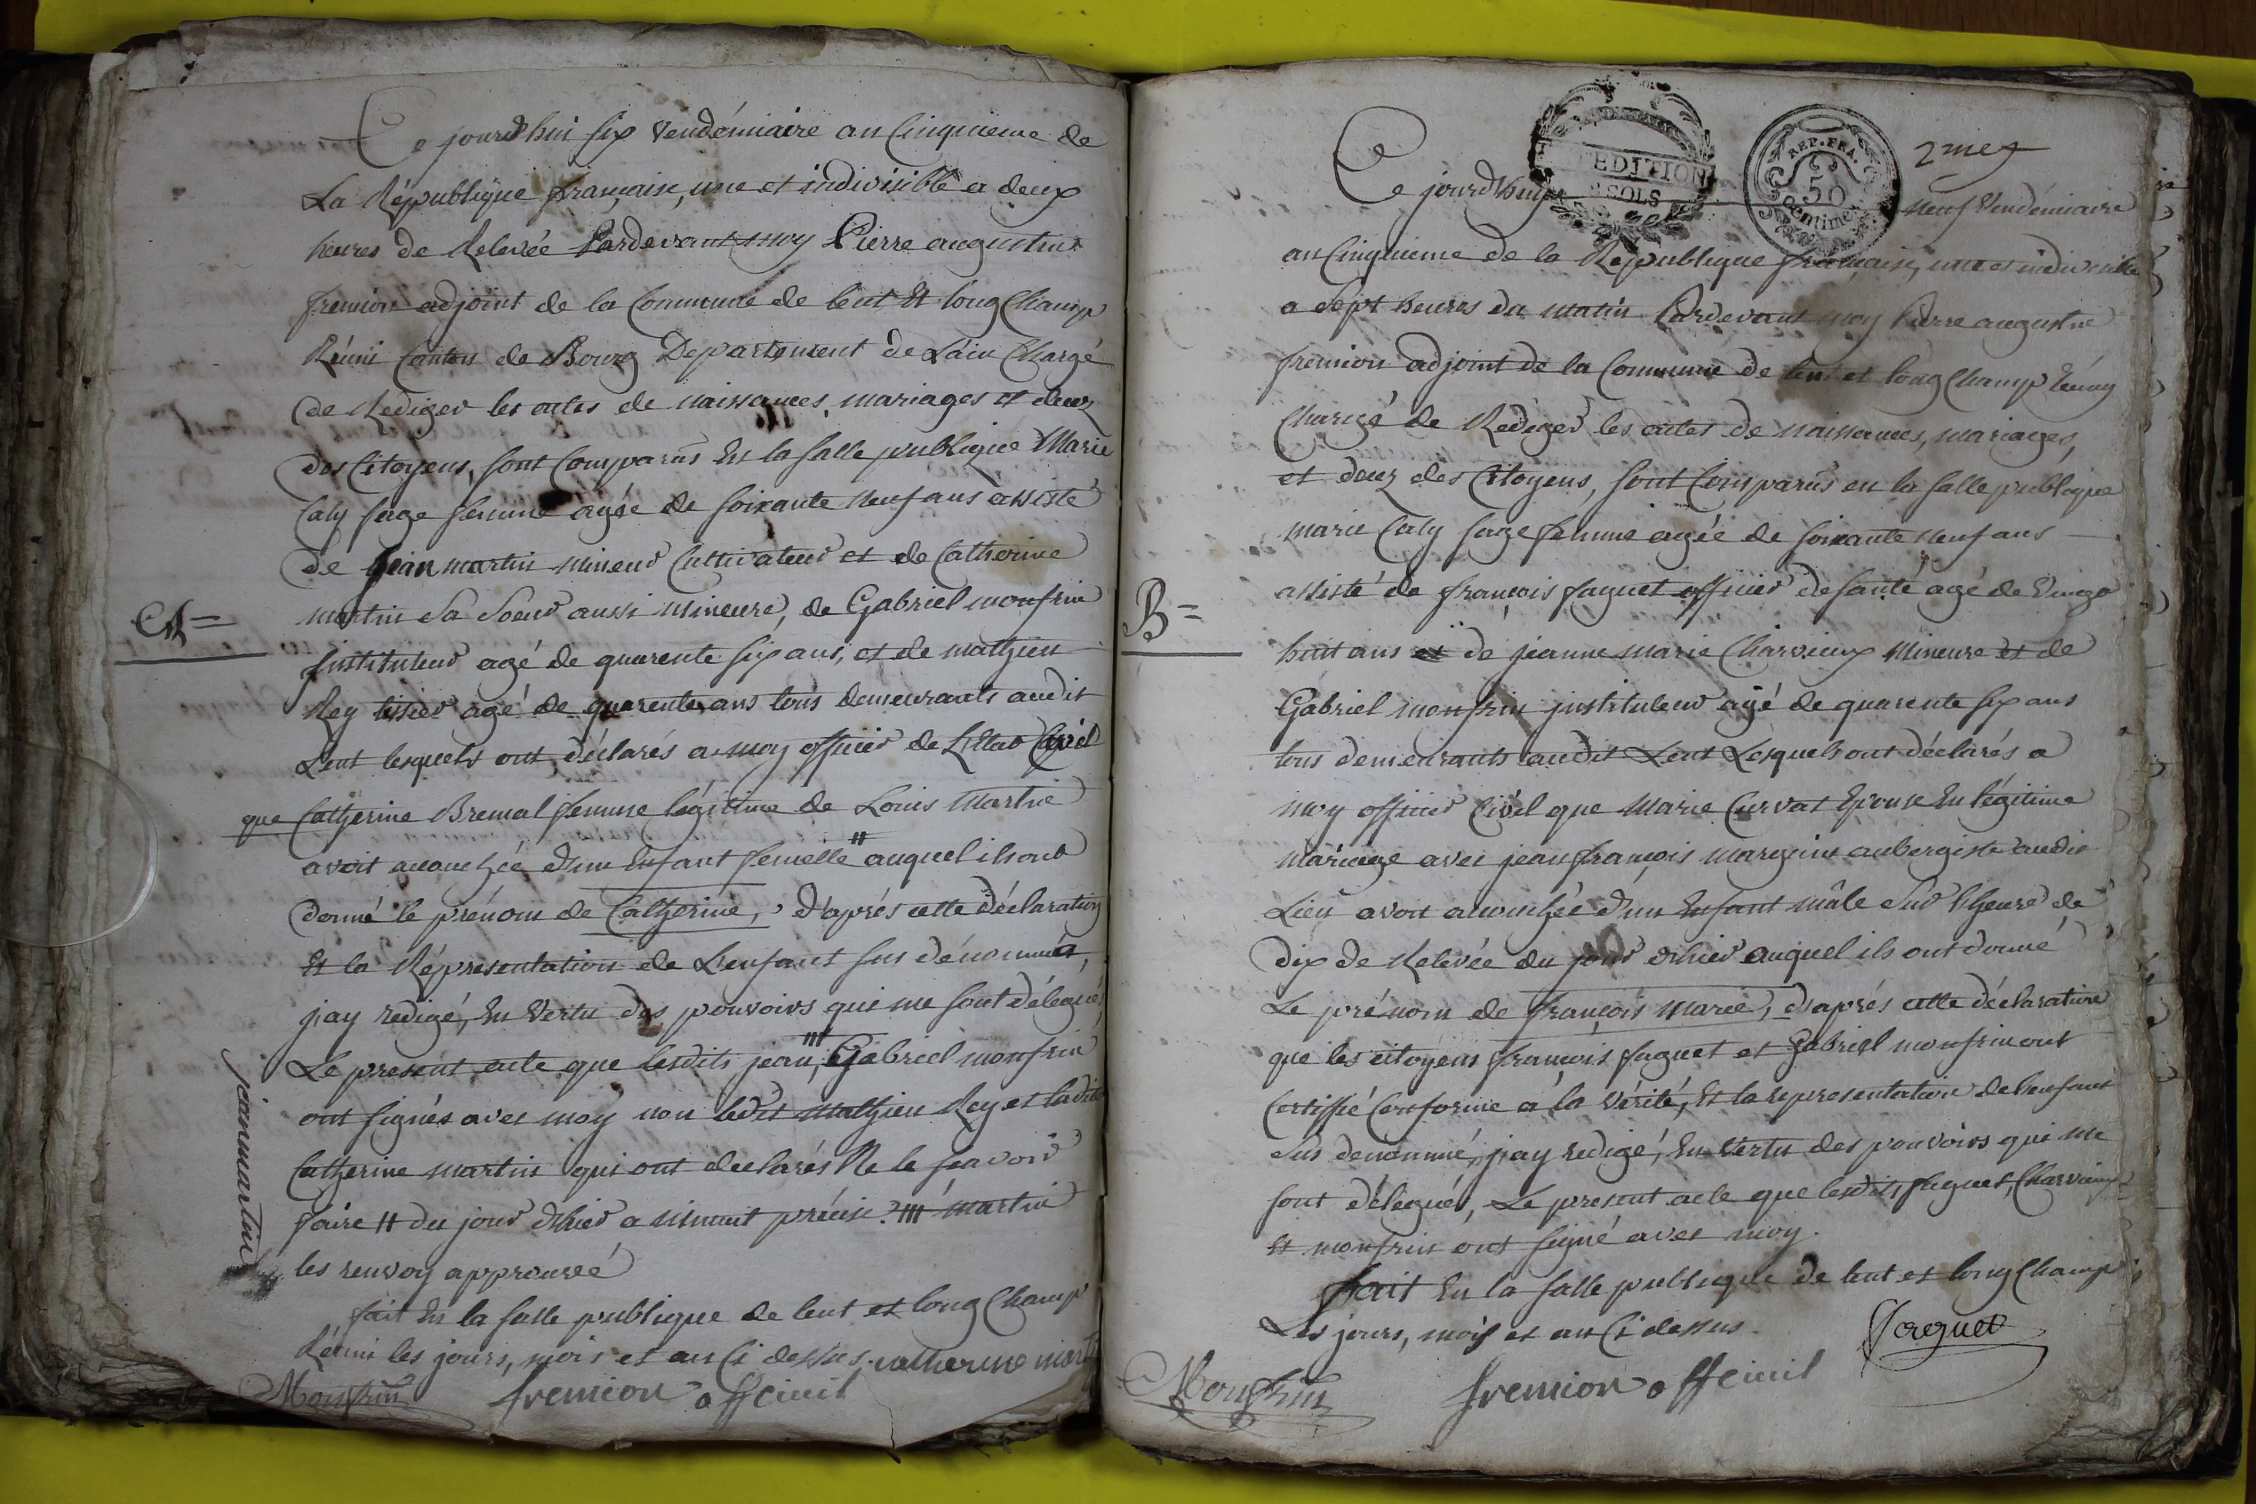 Ce jourd'hui six vendémiaire an Cinquieme de
La République française, une et indivisible a deux
heures de Relevée Pardevant moy Pierre augustin
fremion adjoint de la Commune de lent Et longChamp
Réuni Canton de Bourg Departement de L'ain Chargé
de Rediger les actes de naissances, mariages et deces
des Citoyens, sont Comparus En la salle publique Marie
Caly sage femme agée de soixante neuf ans assisté
de jean martin mineur Cultivateur et de Catherine
A= martin sa soeur aussi mineure, de Gabriel monfrin
jnstituteur agé de quarente six ans, et de mathieu
Rey tissier agé de quarente ans tous demeurants audit
Lent lesquels ont déclarés a moy officier de L'Etat Civil
que Catherine Bremal femme légitime de Louis Martin
avoit acouchée d'un Enfant femelle # auquel ils ont
donné le prénom de Catherine, d'aprés cette déclaration
Et la Répresentation de L'enfant sus dénommée,
j'ay redigé, En vertu des pouvoirs qui me sont délegués
Le present acte que lesdits jean, Gabriel monfrin
ont signés avec moy non ledit mathieu Rey et ladite
Catherine martin qui ont declarés Ne le sçavoir
faire # du jour d'hier a minuit précise. martin
les renvoy approuvé
fait En la salle publique de lent et longChamp
Réuni les jours, mois et an Ci dessus. catherine mart
Monfrin fremion off civil
jeanmartin
EXPEDITION
SOLS
REP. FRA.
50
centimes
Ce jourd'huy neuf Vendémiaire
an Cinquieme de la République française, une et indivisible
a sept heures du matin Pardevant moy Pierre augustin
fremion adjoint de la Commune de lent et longChamp Réuny
Chargé de Rediger les actes de naissances, mariages,
et decez des Citoyens, sont Comparus en la salle publique
marie Caly sage femme agée de soixante neuf ans
B= assisté de françois faguet officier de santé agé de Vingt
huit ans et de jeanne marie Charvieux Mineure et de
Gabriel monfrin jnstituteur agé de quarente six ans
tous demeurants audit Lent Lesquels ont déclarés a
moy officier Civil que Marie Curvat Epouse En légitime
mariage avec jean françois marguin aubergiste audit
Lieu avoit acouchée d'un Enfant mâle sur l'heure de
dix de Relevée du jour d'hier auquel ils ont donné
Le prénom de françois Marie, d'aprés cette déclaration
que les citoyens françois faguet et Gabriel monfrin ont
Certiffié Conforme a la vérité, Et la representation de l'enfant
sus denommé, j'ay redigé, En vertu des pouvoirs qui me
sont délegués, Le present acte que lesdits faguet, Charvieux
Et monfrin ont signé avec moy.
fait En la salle publique de lent et longChamp
Les jours, mois et an Ci dessus. faguet
Monfrin fremion off civil